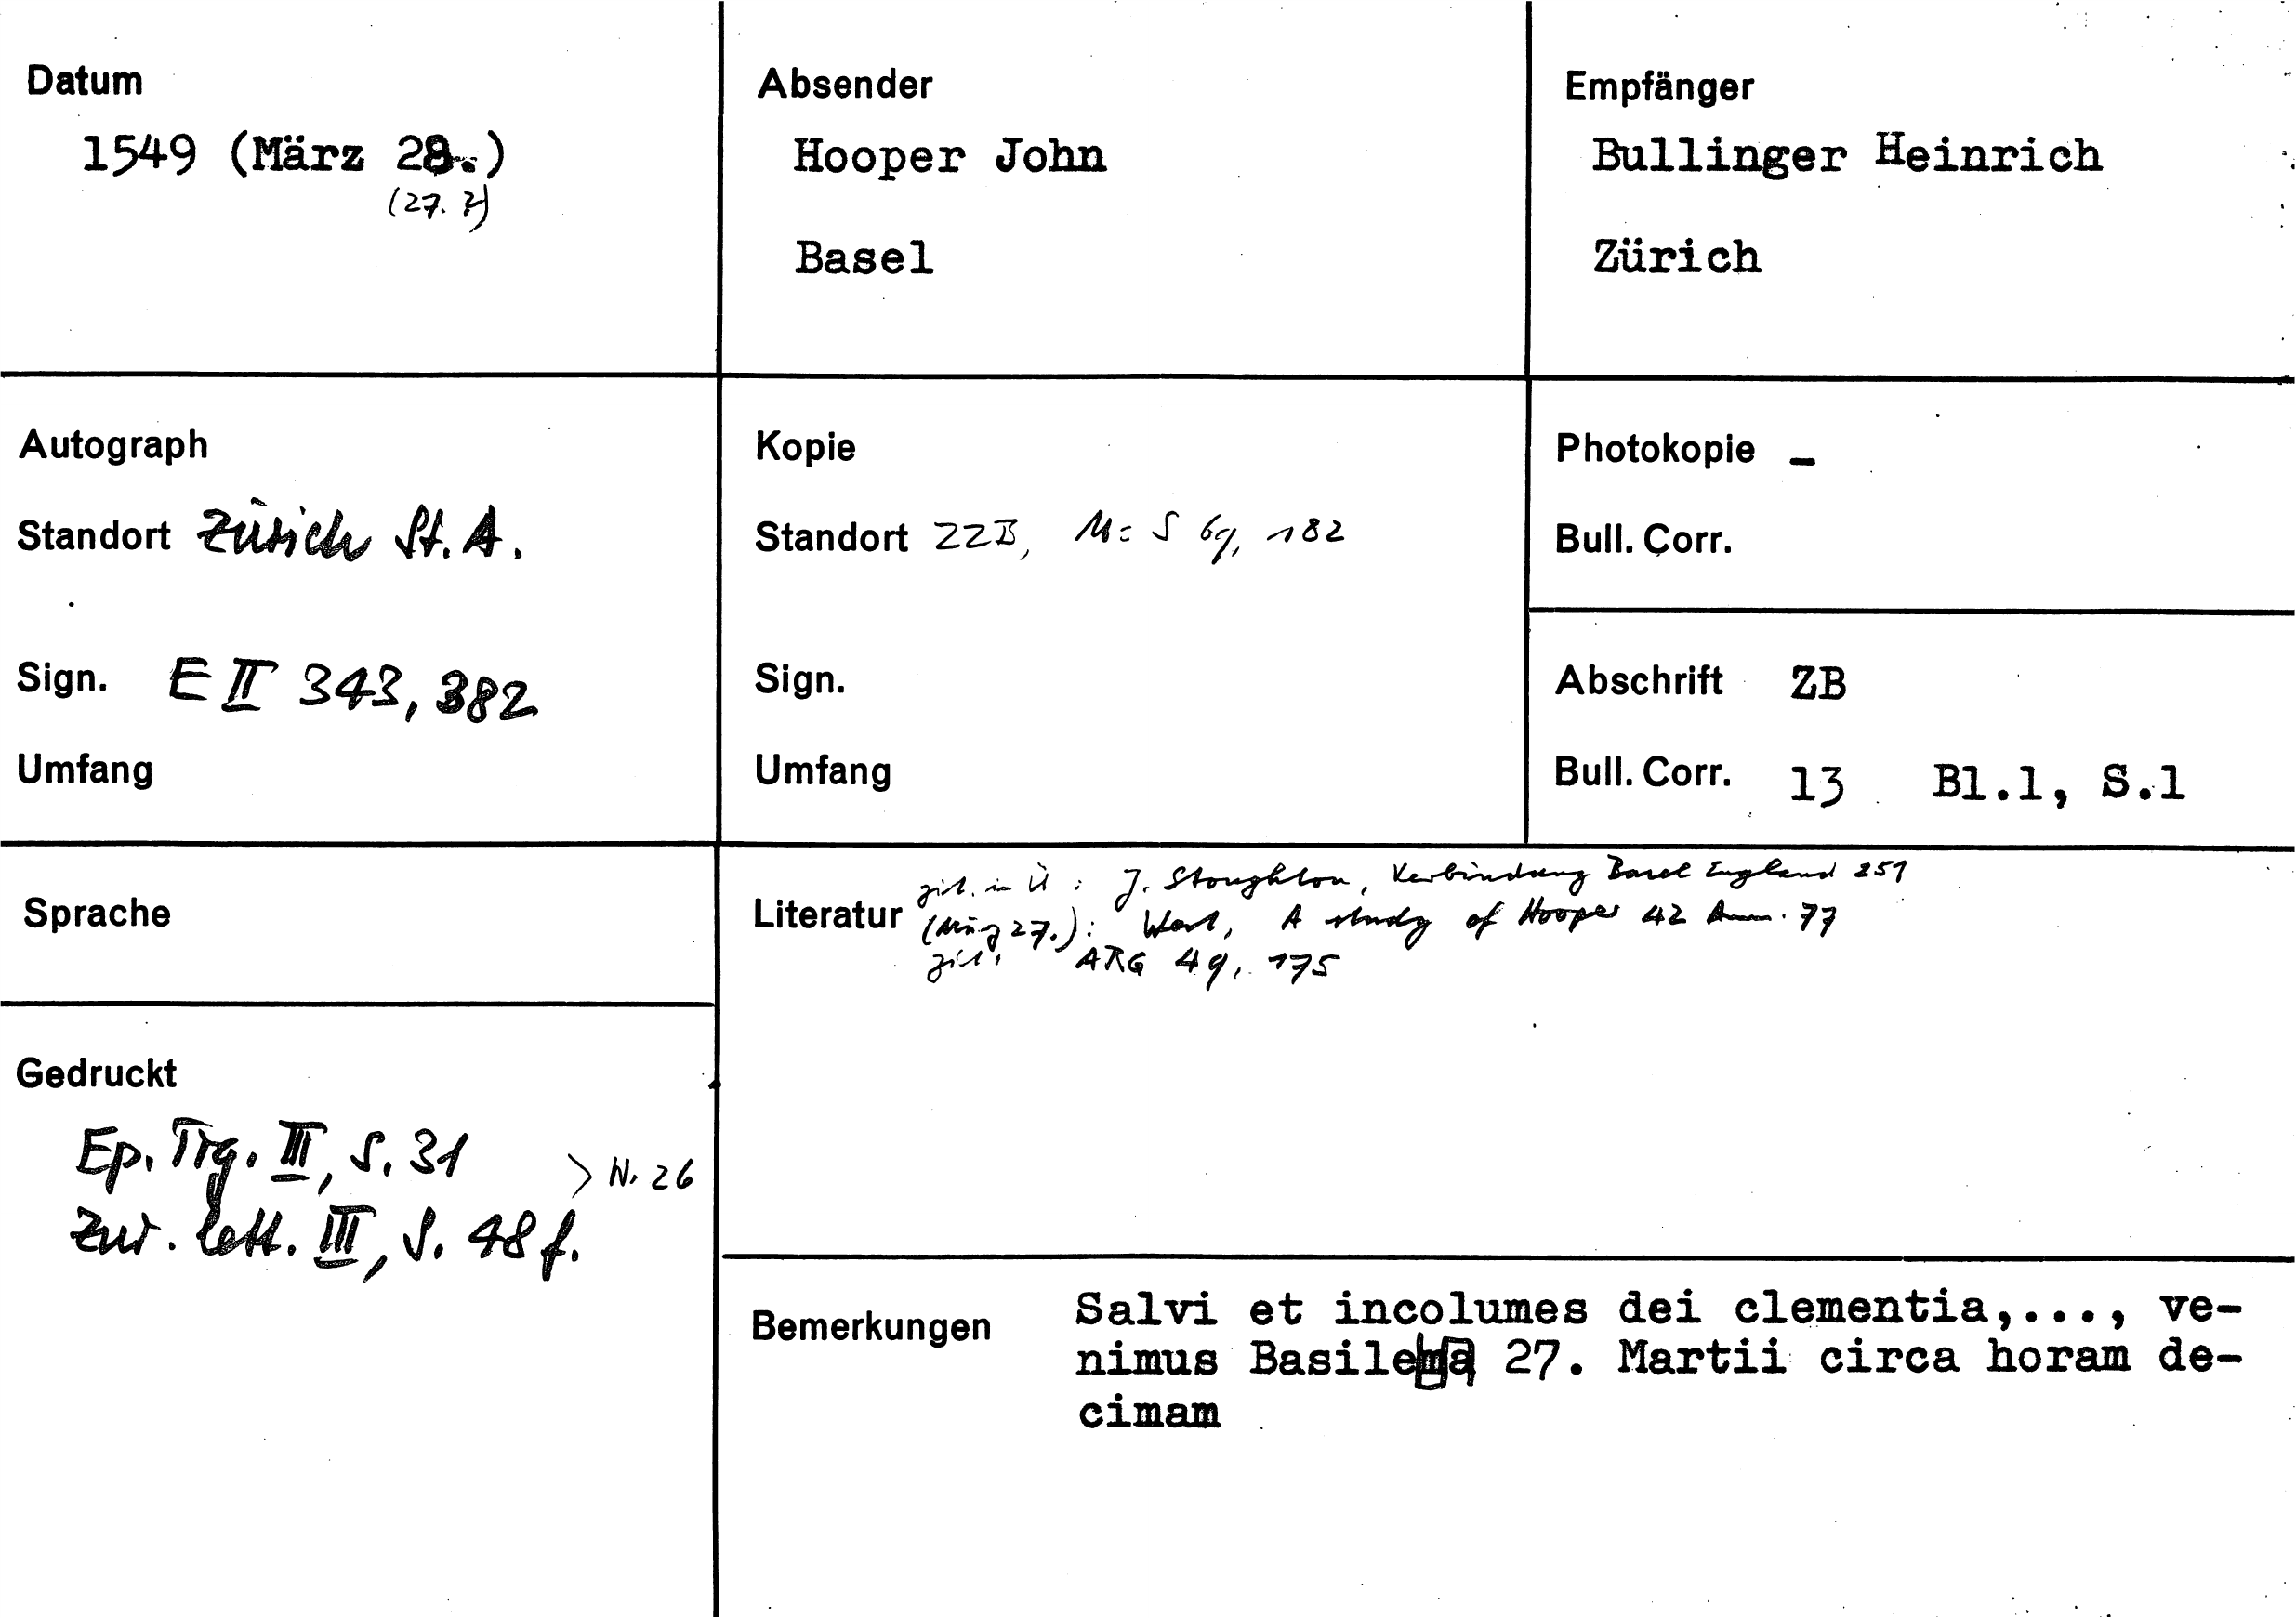 Datum
1549 (März 28.)
(27. ?)
Absender
Hooper John
Basel
Empfänger
Bullinger Heinrich
Zürich
Autograph
Standort Zürich St. A.
Sign. E II 343, 382
Umfang
Kopie
Standort ZZB, Ms S 69, 182
Sign.
Umfang
Photokopie –
Bull. Corr.
Abschrift ZB
Bull. Corr. 13 Bl.1, S.1
Sprache
Literatur zit. in Ü : J. Stoughton, Verbindung Basel England 251
(März 27.): West, A study of Hooper 42 Anm. 77
zit. ARG 49, 175
Gedruckt
Ep. Tig. III, S. 31
> N. 26
Zur. lett. III, S. 48 f.
Bemerkungen
Salvi et incolumes dei clementia,..., ve-
nimus 27. Martii circa horam de-
cimam